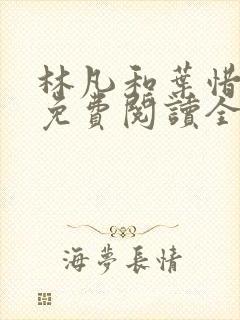 林凡和葉惜
免費閱讀全
海夢長情